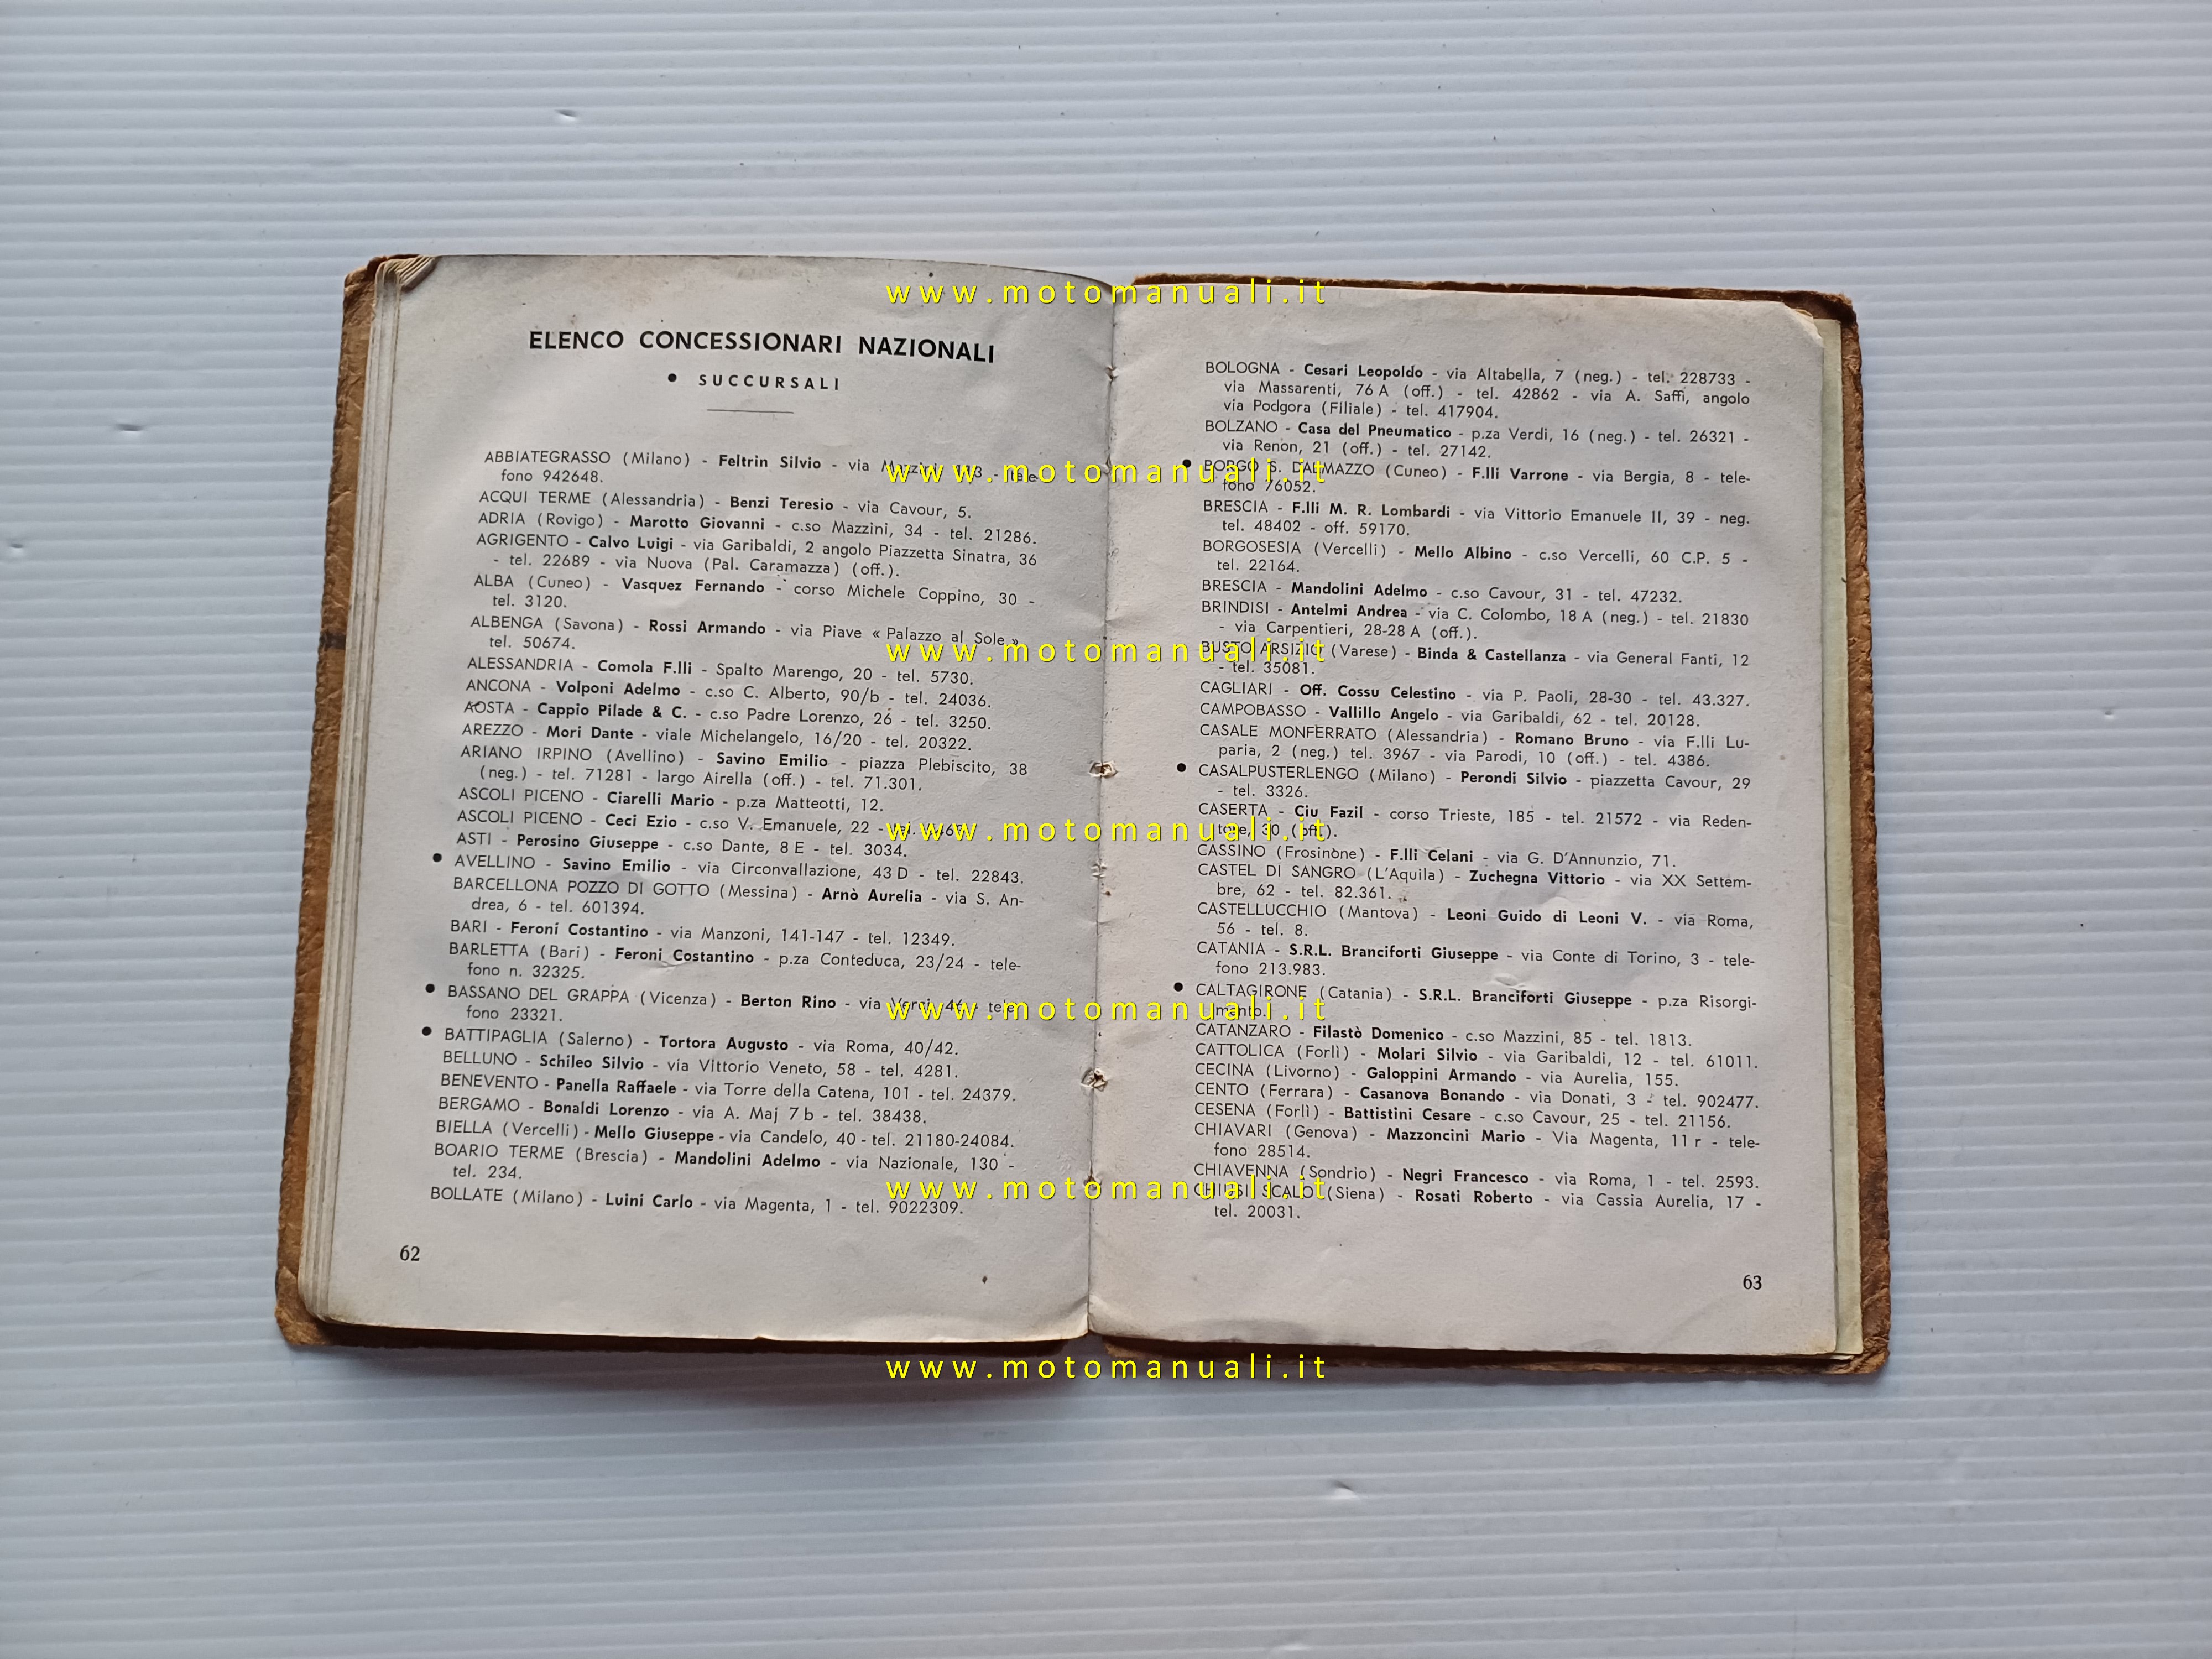 www.motomanuali.it
ELENCO CONCESSIONARI NAZIONALI
● SUCCURSALI
ABBIATEGRASSO (Milano) - Feltrin Silvio - via - tele-
fono 942648.
ACQUI TERME (Alessandria) - Benzi Teresio - via Cavour, 5.
ADRIA (Rovigo) - Marotto Giovanni - c.so Mazzini, 34 - tel. 21286.
AGRIGENTO - Calvo Luigi - via Garibaldi, 2 angolo Piazzetta Sinatra, 36
- tel. 22689 - via Nuova (Pal. Caramazza) (off.).
ALBA (Cuneo) - Vasquez Fernando - corso Michele Coppino, 30 -
tel. 3120.
ALBENGA (Savona) - Rossi Armando - via Piave « Palazzo al Sole »
tel. 50674.
ALESSANDRIA - Comola F.lli - Spalto Marengo, 20 - tel. 5730.
ANCONA - Volponi Adelmo - c.so C. Alberto, 90/b - tel. 24036.
AOSTA - Cappio Pilade & C. - c.so Padre Lorenzo, 26 - tel. 3250.
AREZZO - Mori Dante - viale Michelangelo, 16/20 - tel. 20322.
ARIANO IRPINO (Avellino) - Savino Emilio - piazza Plebiscito, 38
(neg.) - tel. 71281 - largo Airella (off.) - tel. 71.301.
ASCOLI PICENO - Ciarelli Mario - p.za Matteotti, 12.
ASCOLI PICENO - Ceci Ezio - c.so V. Emanuele, 22 - tel.
ASTI - Perosino Giuseppe - c.so Dante, 8 E - tel. 3034.
● AVELLINO - Savino Emilio - via Circonvallazione, 43 D - tel. 22843.
BARCELLONA POZZO DI GOTTO (Messina) - Arnò Aurelia - via S. An-
drea, 6 - tel. 601394.
BARI - Feroni Costantino - via Manzoni, 141-147 - tel. 12349.
BARLETTA (Bari) - Feroni Costantino - p.za Conteduca, 23/24 - tele-
fono n. 32325.
● BASSANO DEL GRAPPA (Vicenza) - Berton Rino - via Verci, 46 - tele-
fono 23321.
● BATTIPAGLIA (Salerno) - Tortora Augusto - via Roma, 40/42.
BELLUNO - Schileo Silvio - via Vittorio Veneto, 58 - tel. 4281.
BENEVENTO - Panella Raffaele - via Torre della Catena, 101 - tel. 24379.
BERGAMO - Bonaldi Lorenzo - via A. Maj 7 b - tel. 38438.
BIELLA (Vercelli) - Mello Giuseppe - via Candelo, 40 - tel. 21180-24084.
BOARIO TERME (Brescia) - Mandolini Adelmo - via Nazionale, 130 -
tel. 234.
BOLLATE (Milano) - Luini Carlo - via Magenta, 1 - tel. 9022309.
62
BOLOGNA - Cesari Leopoldo - via Altabella, 7 (neg.) - tel. 228733 -
via Massarenti, 76 A (off.) - tel. 42862 - via A. Saffi, angolo
via Podgora (Filiale) - tel. 417904.
BOLZANO - Casa del Pneumatico - p.za Verdi, 16 (neg.) - tel. 26321 -
via Renon, 21 (off.) - tel. 27142.
● BORGO S. DALMAZZO (Cuneo) - F.lli Varrone - via Bergia, 8 - tele-
fono 76052.
BRESCIA - F.lli M. R. Lombardi - via Vittorio Emanuele II, 39 - neg.
tel. 48402 - off. 59170.
BORGOSESIA (Vercelli) - Mello Albino - c.so Vercelli, 60 C.P. 5 -
tel. 22164.
BRESCIA - Mandolini Adelmo - c.so Cavour, 31 - tel. 47232.
BRINDISI - Antelmi Andrea - via C. Colombo, 18 A (neg.) - tel. 21830
- via Carpentieri, 28-28 A (off.).
BUSTO ARSIZIO (Varese) - Binda & Castellanza - via General Fanti, 12
- tel. 35081.
CAGLIARI - Off. Cossu Celestino - via P. Paoli, 28-30 - tel. 43.327.
CAMPOBASSO - Vallillo Angelo - via Garibaldi, 62 - tel. 20128.
CASALE MONFERRATO (Alessandria) - Romano Bruno - via F.lli Lu-
paria, 2 (neg.) tel. 3967 - via Parodi, 10 (off.) - tel. 4386.
● CASALPUSTERLENGO (Milano) - Perondi Silvio - piazzetta Cavour, 29
- tel. 3326.
CASERTA - Ciu Fazil - corso Trieste, 185 - tel. 21572 - via Reden-
tore, 30 (off.).
CASSINO (Frosinone) - F.lli Celani - via G. D'Annunzio, 71.
CASTEL DI SANGRO (L'Aquila) - Zuchegna Vittorio - via XX Settem-
bre, 62 - tel. 82.361.
CASTELLUCCHIO (Mantova) - Leoni Guido di Leoni V. - via Roma,
56 - tel. 8.
CATANIA - S.R.L. Branciforti Giuseppe - via Conte di Torino, 3 - tele-
fono 213.983.
● CALTAGIRONE (Catania) - S.R.L. Branciforti Giuseppe - p.za Risorgi-
mento.
CATANZARO - Filastò Domenico - c.so Mazzini, 85 - tel. 1813.
CATTOLICA (Forlì) - Molari Silvio - via Garibaldi, 12 - tel. 61011.
CECINA (Livorno) - Galoppini Armando - via Aurelia, 155.
CENTO (Ferrara) - Casanova Bonando - via Donati, 3 - tel. 902477.
CESENA (Forlì) - Battistini Cesare - c.so Cavour, 25 - tel. 21156.
CHIAVARI (Genova) - Mazzoncini Mario - Via Magenta, 11 r - tele-
fono 28514.
CHIAVENNA (Sondrio) - Negri Francesco - via Roma, 1 - tel. 2593.
CHIUSI SCALO (Siena) - Rosati Roberto - via Cassia Aurelia, 17 -
tel. 20031.
63
www.motomanuali.it
www.motomanuali.it
www.motomanuali.it
www.motomanuali.it
www.motomanuali.it
www.motomanuali.it